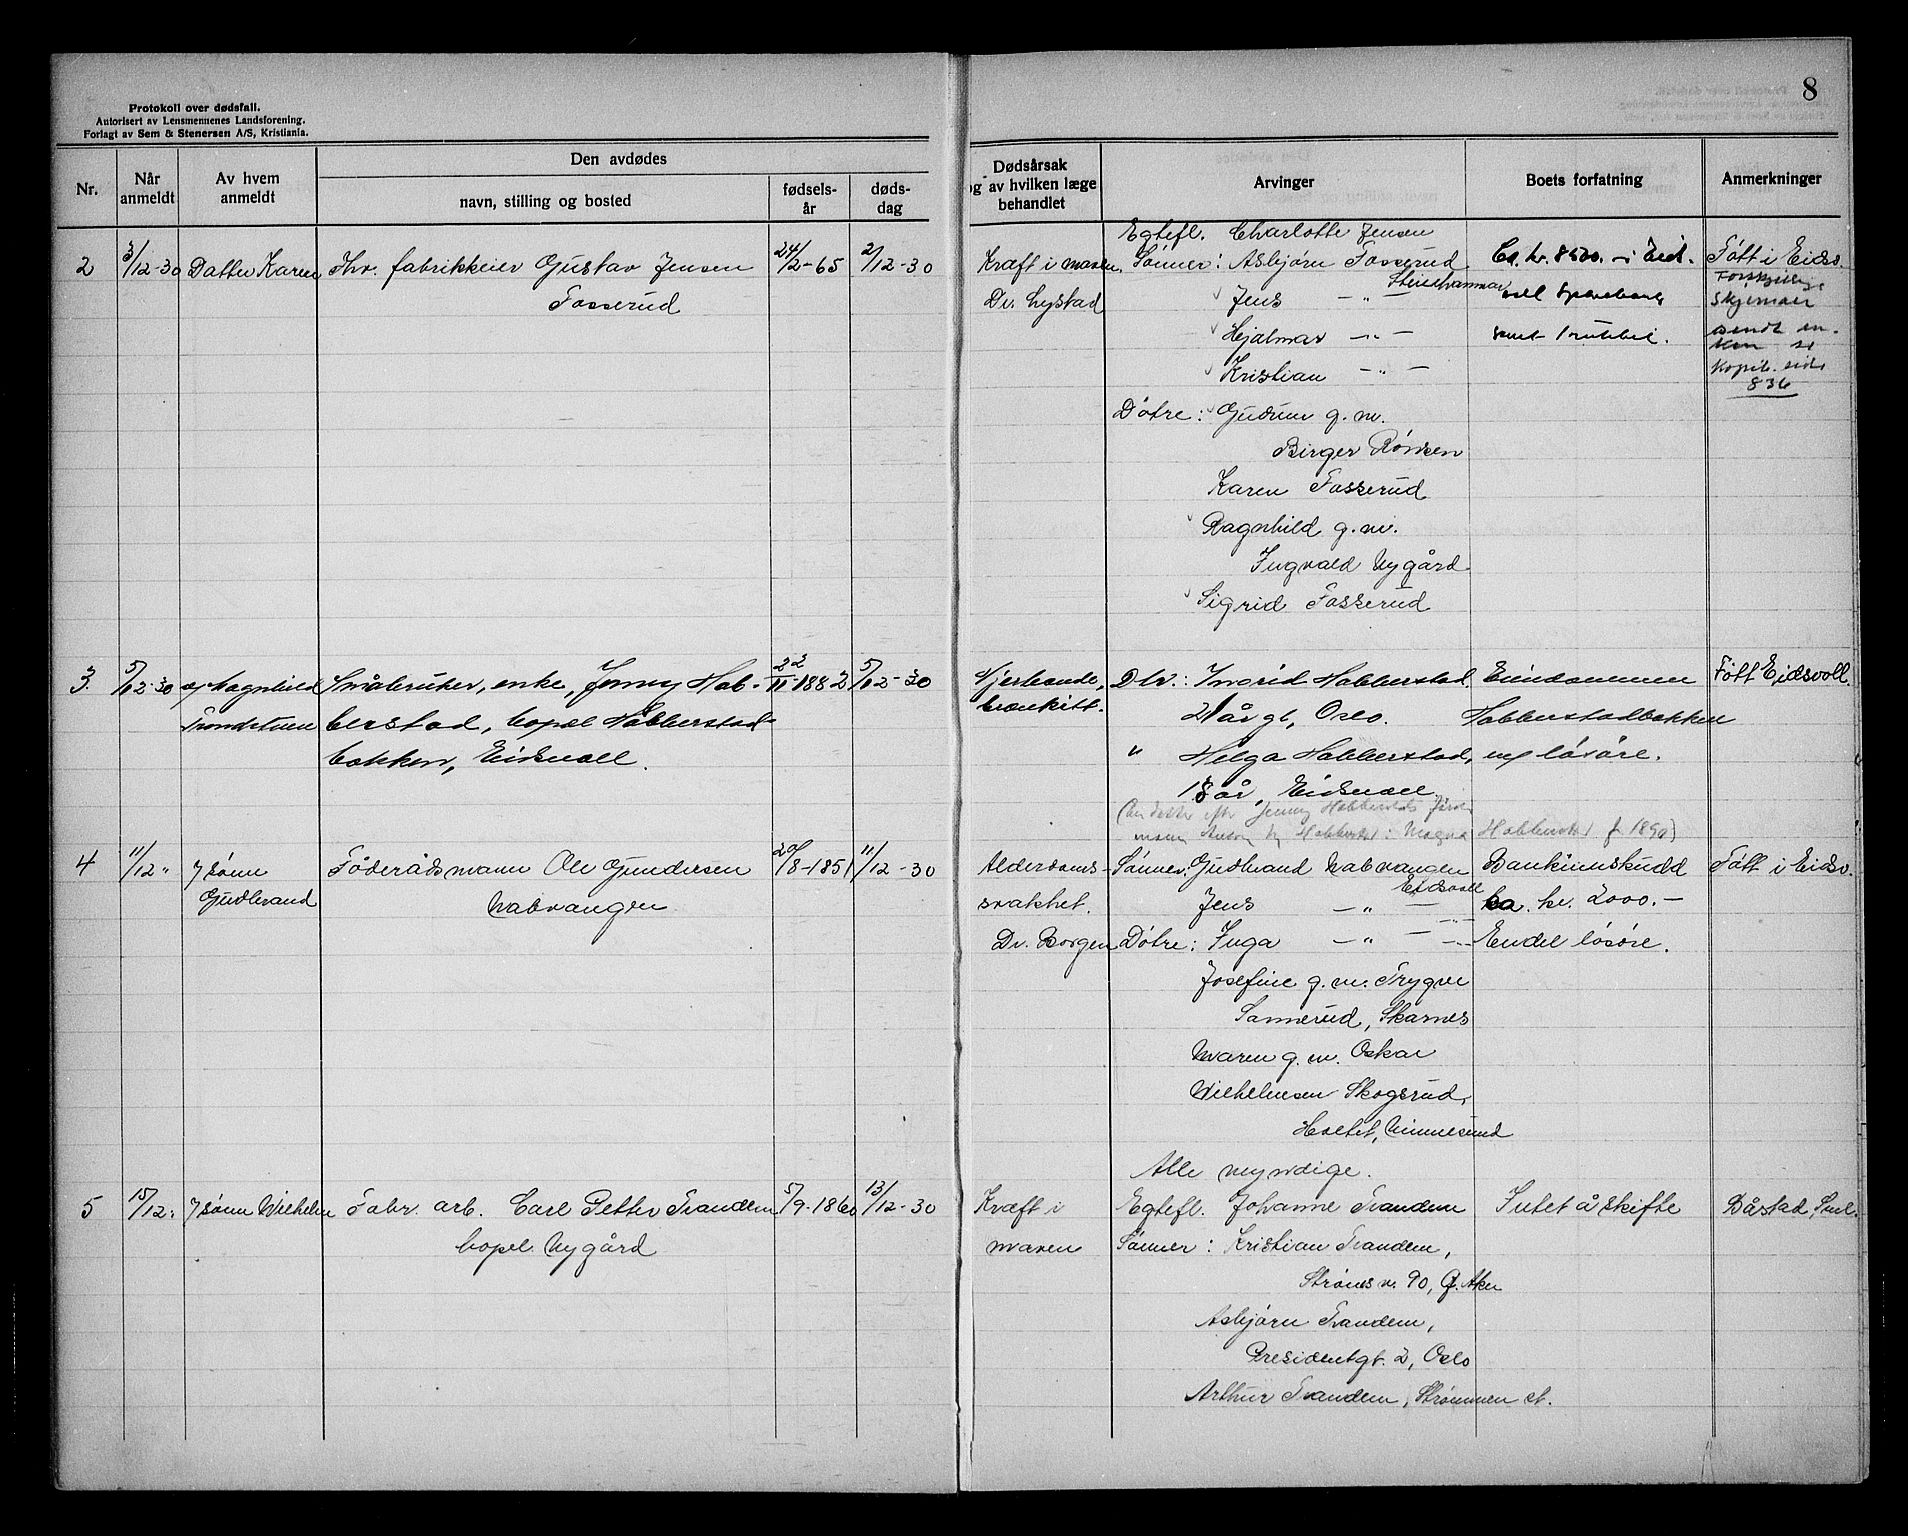 8
Protokoll over dødsfall.
Autorisert av Lensmennenes Landsforening.
Forlagt av Sem & Stenersen A/S, Kristiania.
Nr.
Når anmeldt
Av hvem anmeldt
Den avdødes
navn, stilling og bosted
fødsels-år
døds-dag
Dødsårsak
og av hvilken læge
behandlet
Arvinger
Boets forfatning
Anmerkninger
2
3/12-30
Datter Karen
fhv. fabrikkeier Gustav Jensen
Fosserud
24/2-65
2/12-30
Kræft i maven
Dr. Lystad
Egtefl. Charlotte Jensen
Sønner: Asbjørn Fosserud
Jens -„-
Hjalmar -„-
Kristian -„-
Døtre: Gudrun g. m.
Birger Rønsen
Karen Fosserud
Ragnhild g. m.
Ingvald Nygård
Sigrid Fosserud
Ca. kr. 8500.- i Eid.
voll Sparebank
samt
Føtt i Eidsv.
Forskjellige
skjemaer
sendt en-
ken se
kopib. side
836
3.
5/12-30
Magnhild
Trondstuen
Småbruker, enke, Jenny Hab-
berstad, bopæl Habberstad-
bakken, Eidsvoll.
22/11-1882
5/12-30
Hjerteonde,
bronkitt.
Dtr.: Ingrid Habberstad
21 år gl, Oslo.
" Helga Habberstad,
18 år, Eidsvoll
Eiendommen
Habberstadbakken
m/ løsøre.
Føtt Eidsvoll.
(En datter efter Jenny Habberstads
mann Anton Habberstad: Magna Habberstad f. 1890)
4
11/12 "
7 sønn
Gudbrand
Føderådsmann Ole Gundersen
Nabvangen
20/8-1851
11/12-30
Alderdoms-
svakhet.
Dr. Borgen
Sønner: Gudbrand Nabvangen
Eidsvoll
Jens -„-
Døtre: Inga -„-
Josefine g. m. Trygve
Sannerud, Skarnes
Maren g. m. Oskar
Wilhelmsen Skogsrud,
Holtet, Minnesund
Alle myndige.
Bankinnskudd
ca. kr. 2000.-
Endel løsøre.
Føtt i Eidsv.
5
15/12.
7 sønn Wilhelm
Fabr. arb. Carl Petter Trandem
bopel Nygård
5/9-1860
13/12-30
Kræft i
maven
Egtefl. Johanne Trandem
Sønner: Kristian Trandem,
Strøms v. 90, Ø. Aker
Asbjørn Trandem,
Presidentgt. 2, Oslo
Arthur Trandem, Strømmen st.
Intet å skifte
Båstad,